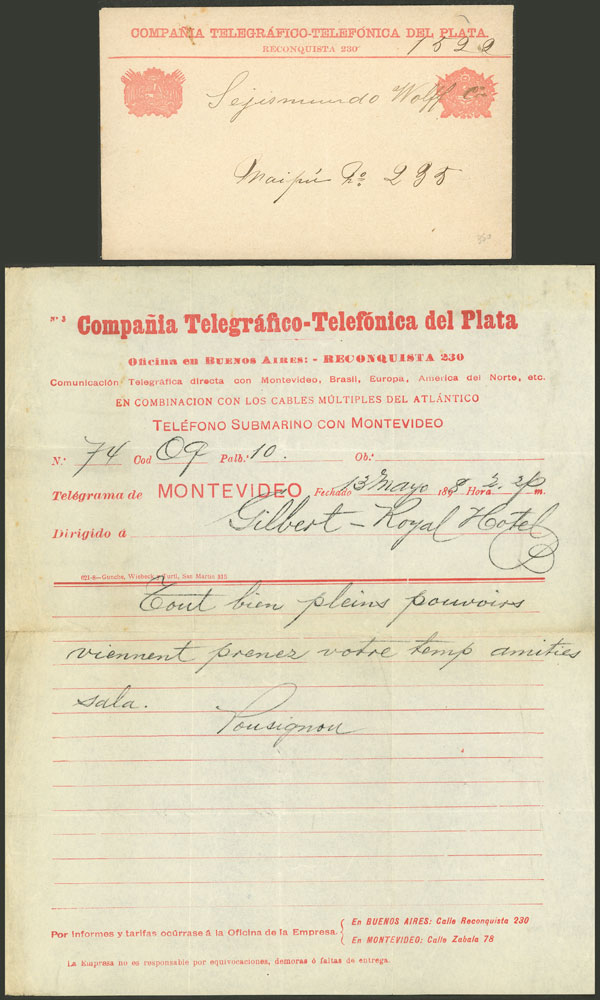 COMPAÑIA TELEGRÁFICO-TELEFÓNICA DEL PLATA.
RECONQUISTA 230
1522
Sejismundo Wolff Cia
Maipú No. 235
350
Nº 3 Compañia Telegráfico-Telefónica del Plata
Oficina en BUENOS AIRES: - RECONQUISTA 230
Comunicación Telegráfica directa con Montevideo, Brasil, Europa, America del Norte, etc.
EN COMBINACION CON LOS CABLES MÚLTIPLES DEL ATLÁNTICO
TELÉFONO SUBMARINO CON MONTEVIDEO
N.º 74 Cod Oq Palb.s 10. Ob.s
Telégrama de MONTEVIDEO Fechado 13 Mayo 1898 Hora 2. 2p m.
Dirigido á Gilbert - Royal Hotel
621-8—Gunche, Wiebeck y Turtl, San Martin 315
Tout bien pleins pouvoirs
viennent prenez votre temp amities
sala.
Pousignon
Por informes y tarifas ocúrrase á la Oficina de la Empresa.
En BUENOS AIRES: Calle Reconquista 230
En MONTEVIDEO: Calle Zabala 78
La Empresa no es responsable por equivocaciones, demoras ó faltas de entrega.